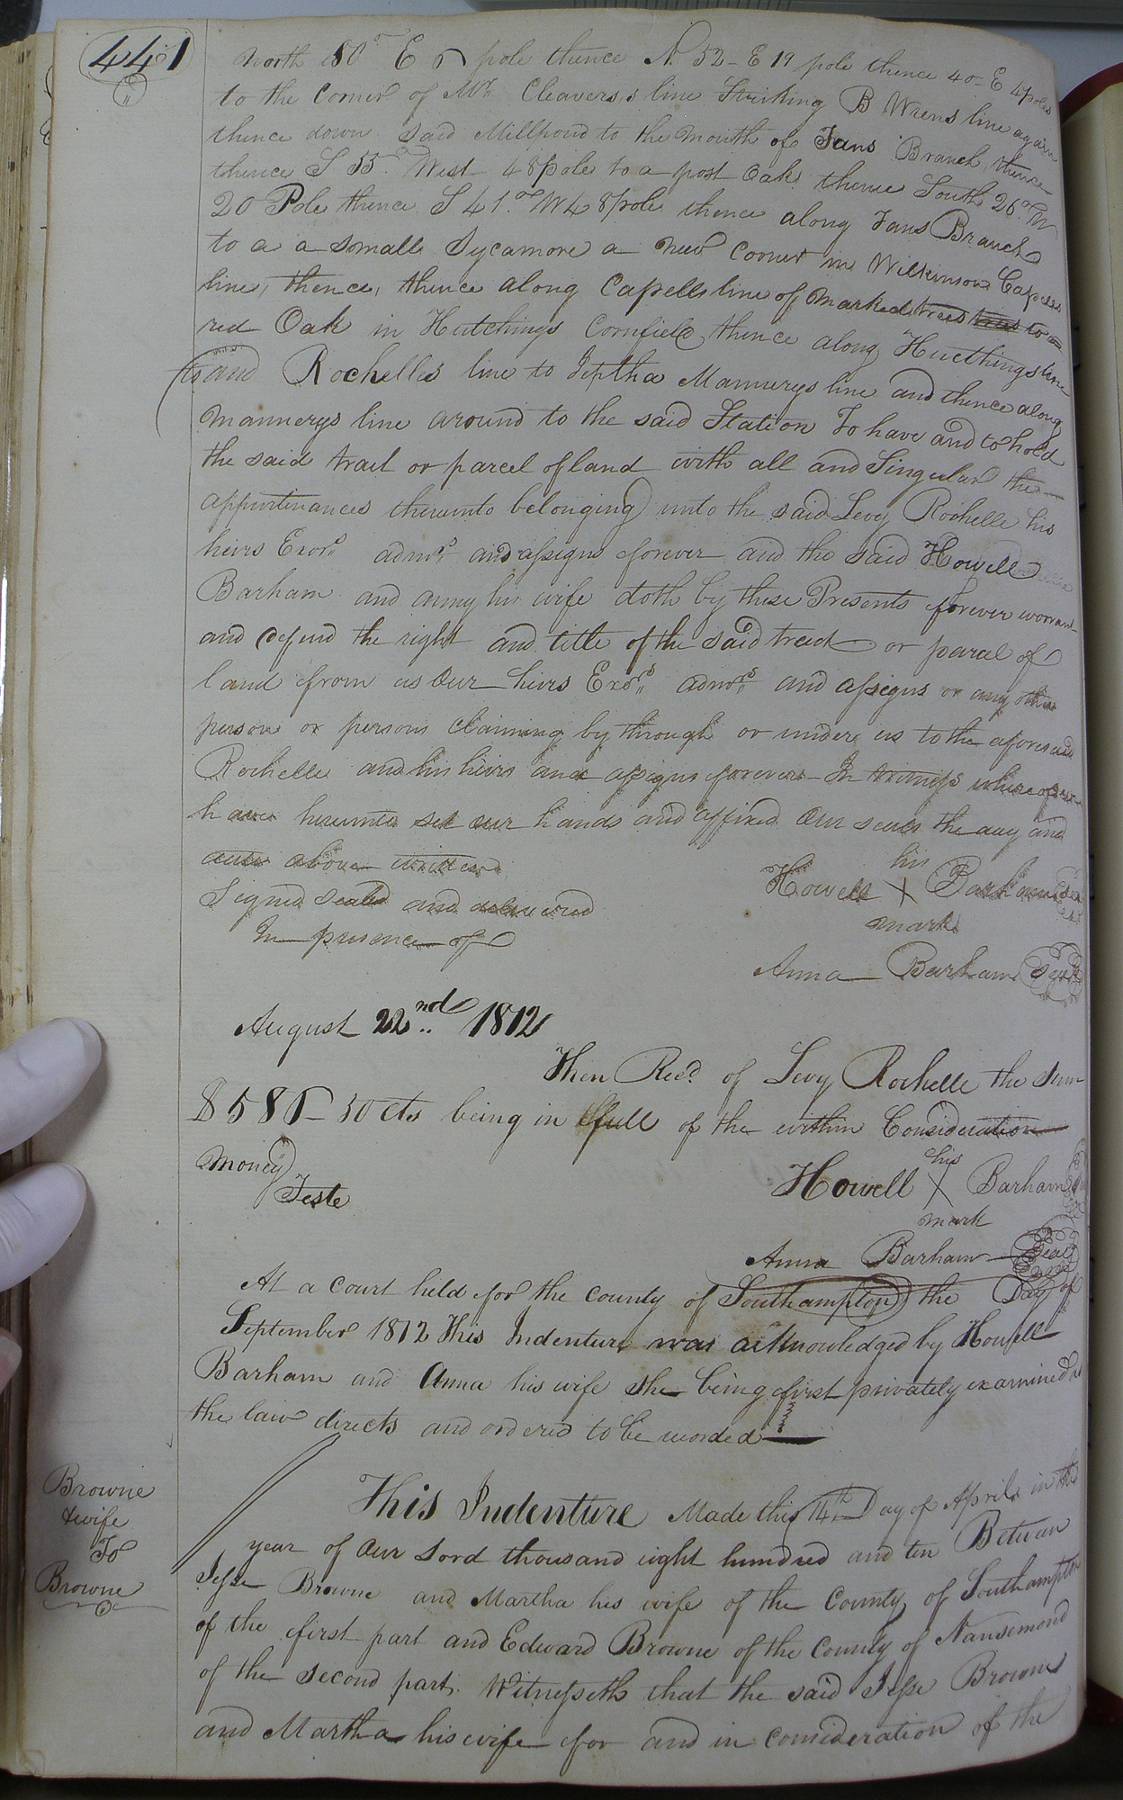 441
North 80° E 6 pole thence N. 52 - E 19 pole thence 40 - E 4 poles
to the Corner of Mr. Cleavers s line Striking B Wrens line again
thence down said Millpond to the mouth of Fans Branch, thence
thence S 55° West 48 poles to a post Oak. thence South 26° W
20 Pole thence S 41° W 48 pole thence along Fans Branch
to a a small Sycamore a new corner in Wilkinson Capells
line, thence, thence along Capells line of marked trees trees to a
red Oak in Hutchings Cornfield, thence along Hutchings line
and Rochelles line to Jeptha Mannerys line and thence along
Mannerys line around to the said Station To have and to hold
the said tract or parcel of land with all and Singular the
appurtinances thereunto belonging unto the said Levy Rochelle his
heirs Exors admrs and assigns forever and the said Howell
Barham and anny his wife doth by these Presents forever worrant
and defend the right and title of the said tract or parcel of
land from us our heirs Exors admrs and assigns or any other
person or persons claiming by through or under us to the aforesaid
Rochelle and his heirs and assigns forever - In witness whereof we
have hereunto set our hands and affixed our seals the day and
above written
Signed Sealed and delivered
In presence of
his
Howell X Barham
mark
Anna Barham Seal
August 22nd 1812
Then Recd. of Levy Rochelle the Sum
$585 - 50 cts being in full of the within Consideration
Money
Teste
his
Howell X Barham
mark
Anna Barham Seal
At a Court held for the County of Southampton the Day of
September 1812 This Indenture was acknowledged by Howell
Barham and Anna his wife she being first privately examined as
the law directs and ordered to be recorded
Browne
& wife
To
Browne
This Indenture Made this 14th Day of April in the
year of our Lord thousand eight hundred and ten Between
Jesse Browne and Martha his wife of the County of Southampton
of the first part and Edward Browne of the County of Nansemond
of the second part. Witnesseth that the said Jesse Browne
and Martha his wife for and in consideration of the